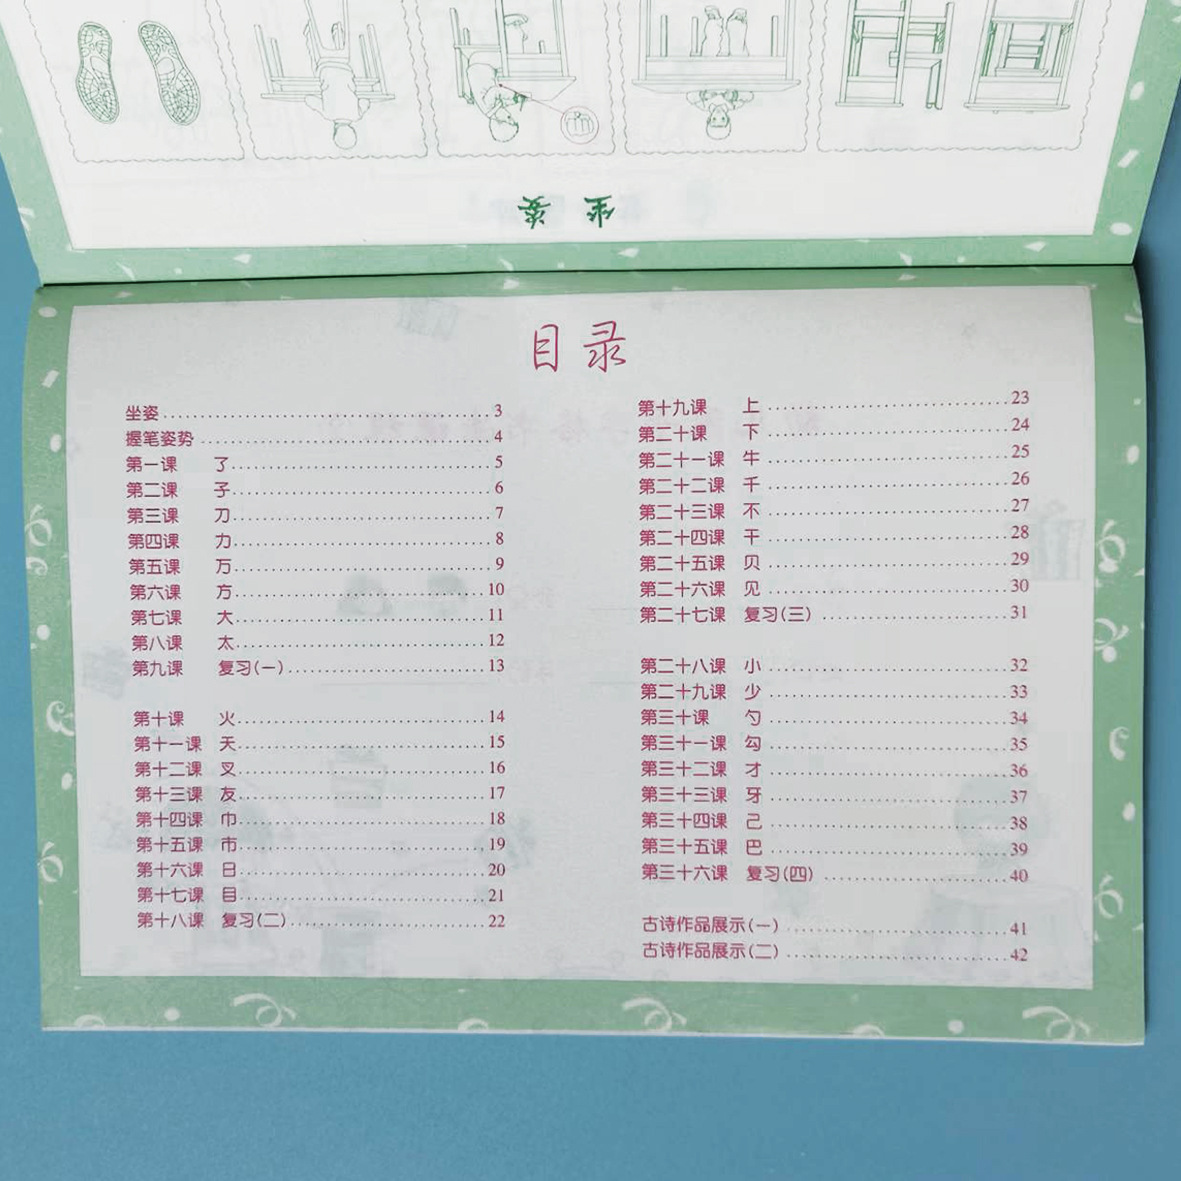 坐姿
目录
坐姿 3
握笔姿势 4
第一课 了 5
第二课 子 6
第三课 刀 7
第四课 力 8
第五课 万 9
第六课 方 10
第七课 大 11
第八课 太 12
第九课 复习(一) 13
第十课 火 14
第十一课 天 15
第十二课 叉 16
第十三课 友 17
第十四课 巾 18
第十五课 市 19
第十六课 日 20
第十七课 目 21
第十八课 复习(二) 22
第十九课 上 23
第二十课 下 24
第二十一课 牛 25
第二十二课 千 26
第二十三课 不 27
第二十四课 干 28
第二十五课 贝 29
第二十六课 见 30
第二十七课 复习(三) 31
第二十八课 小 32
第二十九课 少 33
第三十课 勺 34
第三十一课 勾 35
第三十二课 才 36
第三十三课 牙 37
第三十四课 己 38
第三十五课 巴 39
第三十六课 复习(四) 40
古诗作品展示(一) 41
古诗作品展示(二) 42